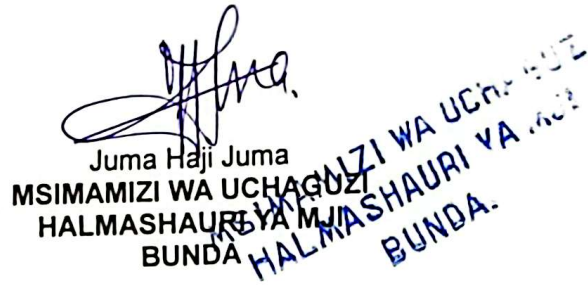 Juma Haji Juma
MSIMAMIZI WA UCHAGUZI
HALMASHAURI YA MJI
BUNDA
MSIMAMIZI WA
HALMASHAURI YA
BUNDA.